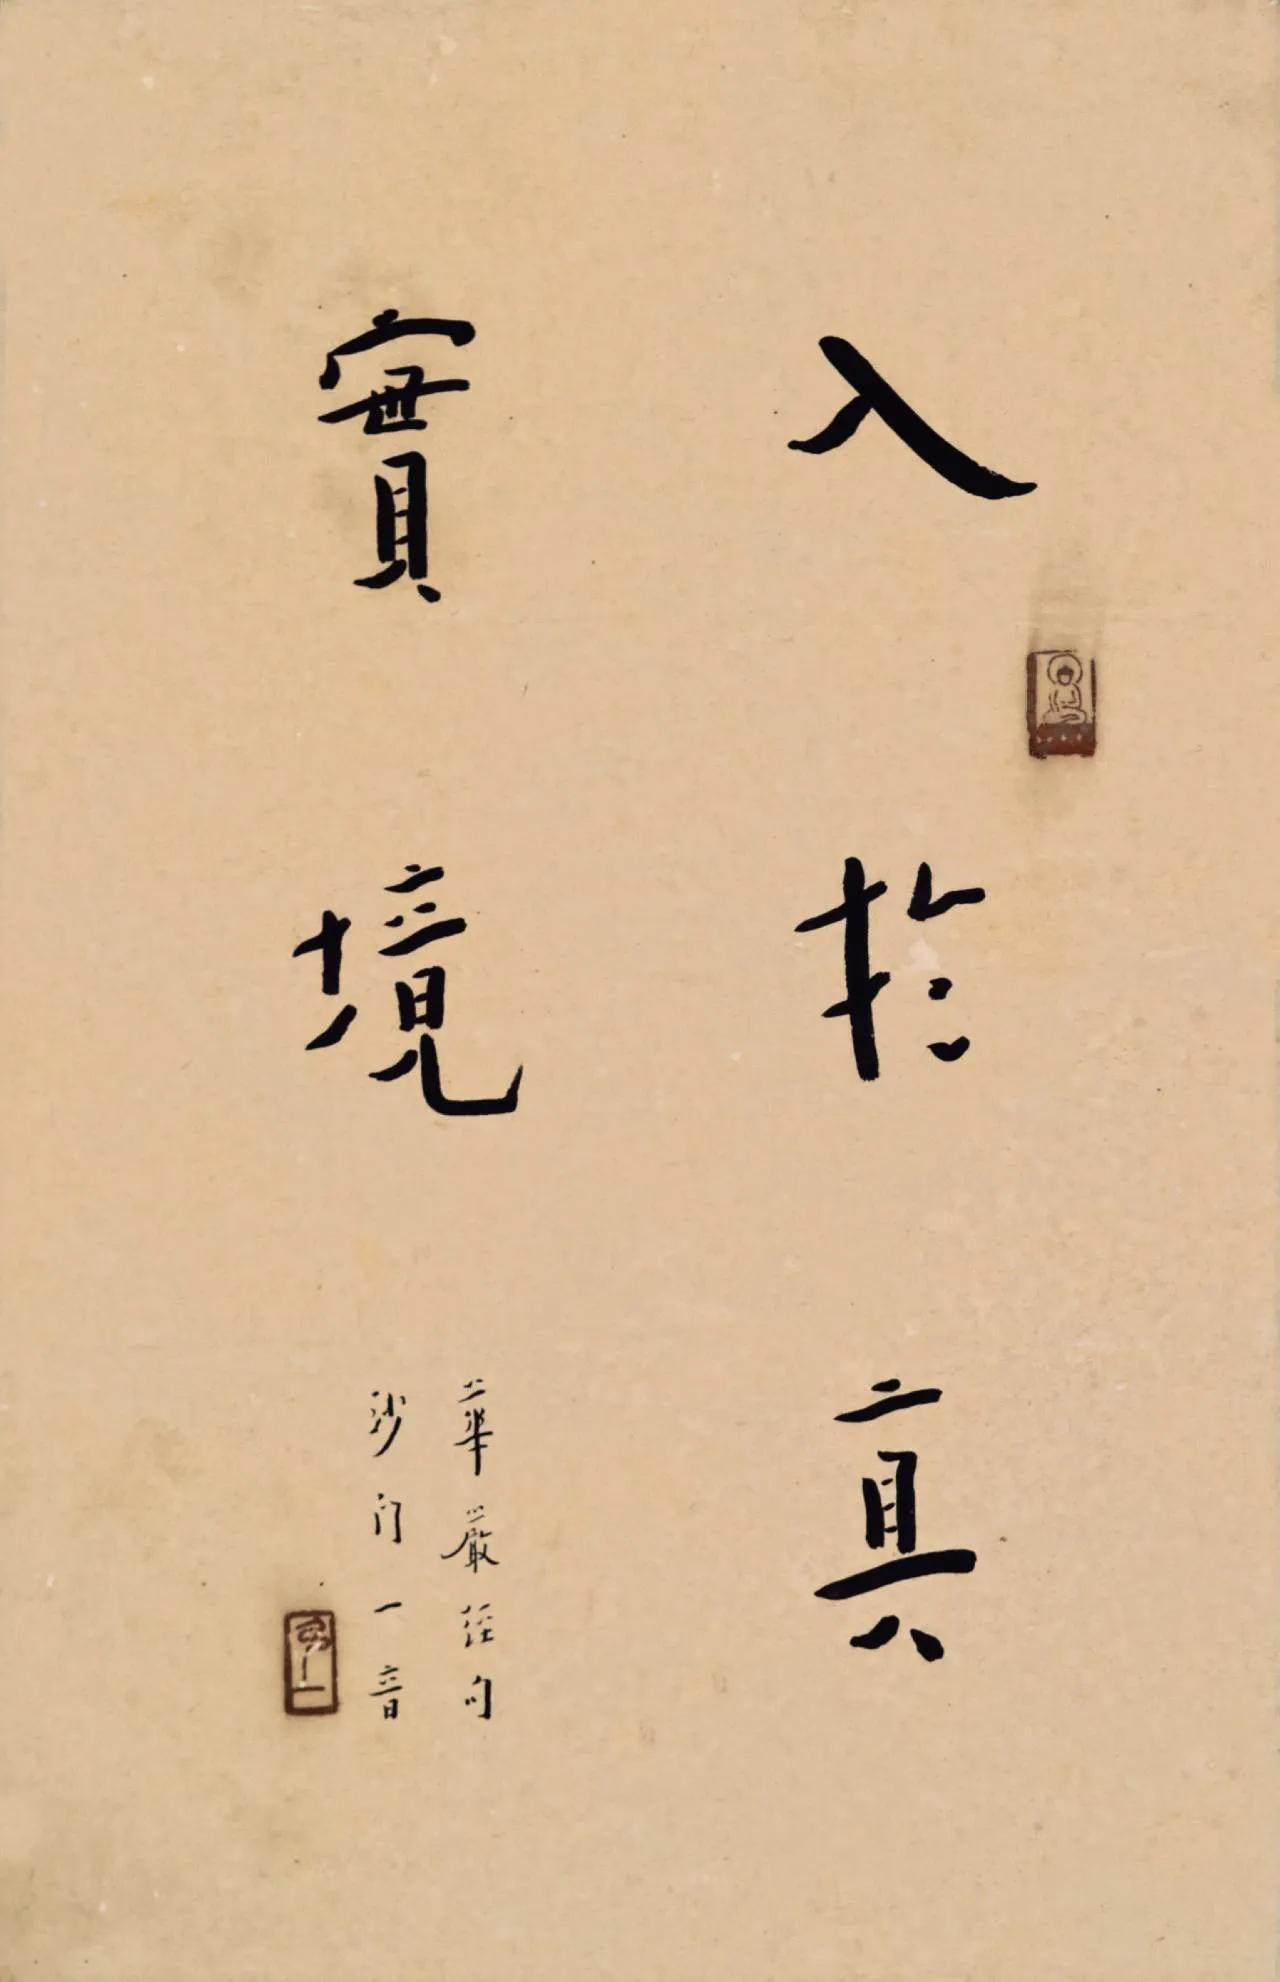 入於真
實境
華嚴經句
沙門一音